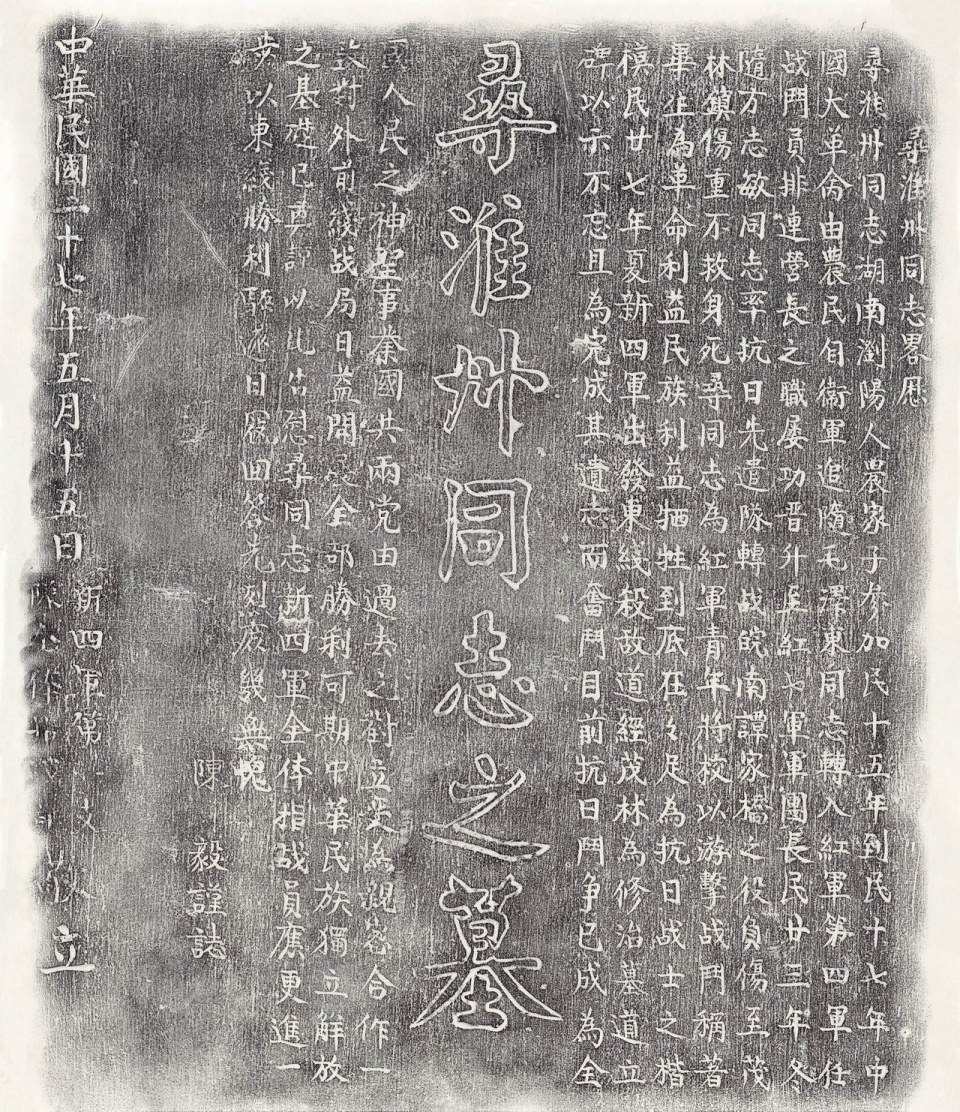 尋淮州同志畧歷
尋淮州同志湖南瀏陽人農家子參加民十五年到民十七年中
國大革命由農民自衛軍追隨毛澤東同志轉入紅軍第四軍任
战鬥員排連營長之職屡功晋升至紅七軍軍團長民廿三年冬
隨方志敏同志率抗日先遣隊轉战皖南譚家橋之役負傷至茂
林鎮傷重不救身死尋同志為紅軍青年將校以游擊战鬥稱著
畢生為革命利益民族利益牺牲到底在在足為抗日战士之楷
模民廿七年夏新四軍出發東綫殺敌道經茂林為修治墓道立
碑以示不忘且為完成其遺志而奮鬥目前抗日鬥争已成為全
國人民之神聖事業國共兩党由過去之對立变為親密合作一
致對外前綫战局日益開展全部勝利可期中華民族獨立解放
之基礎已奠謹以此告慰尋同志新四軍全体指战員應更進一
步以東綫勝利驅逐日寇回答先烈庶幾無愧
陳毅謹誌
尋淮州同志之墓
中華民國二十七年五月十五日
新四軍第一支隊
立